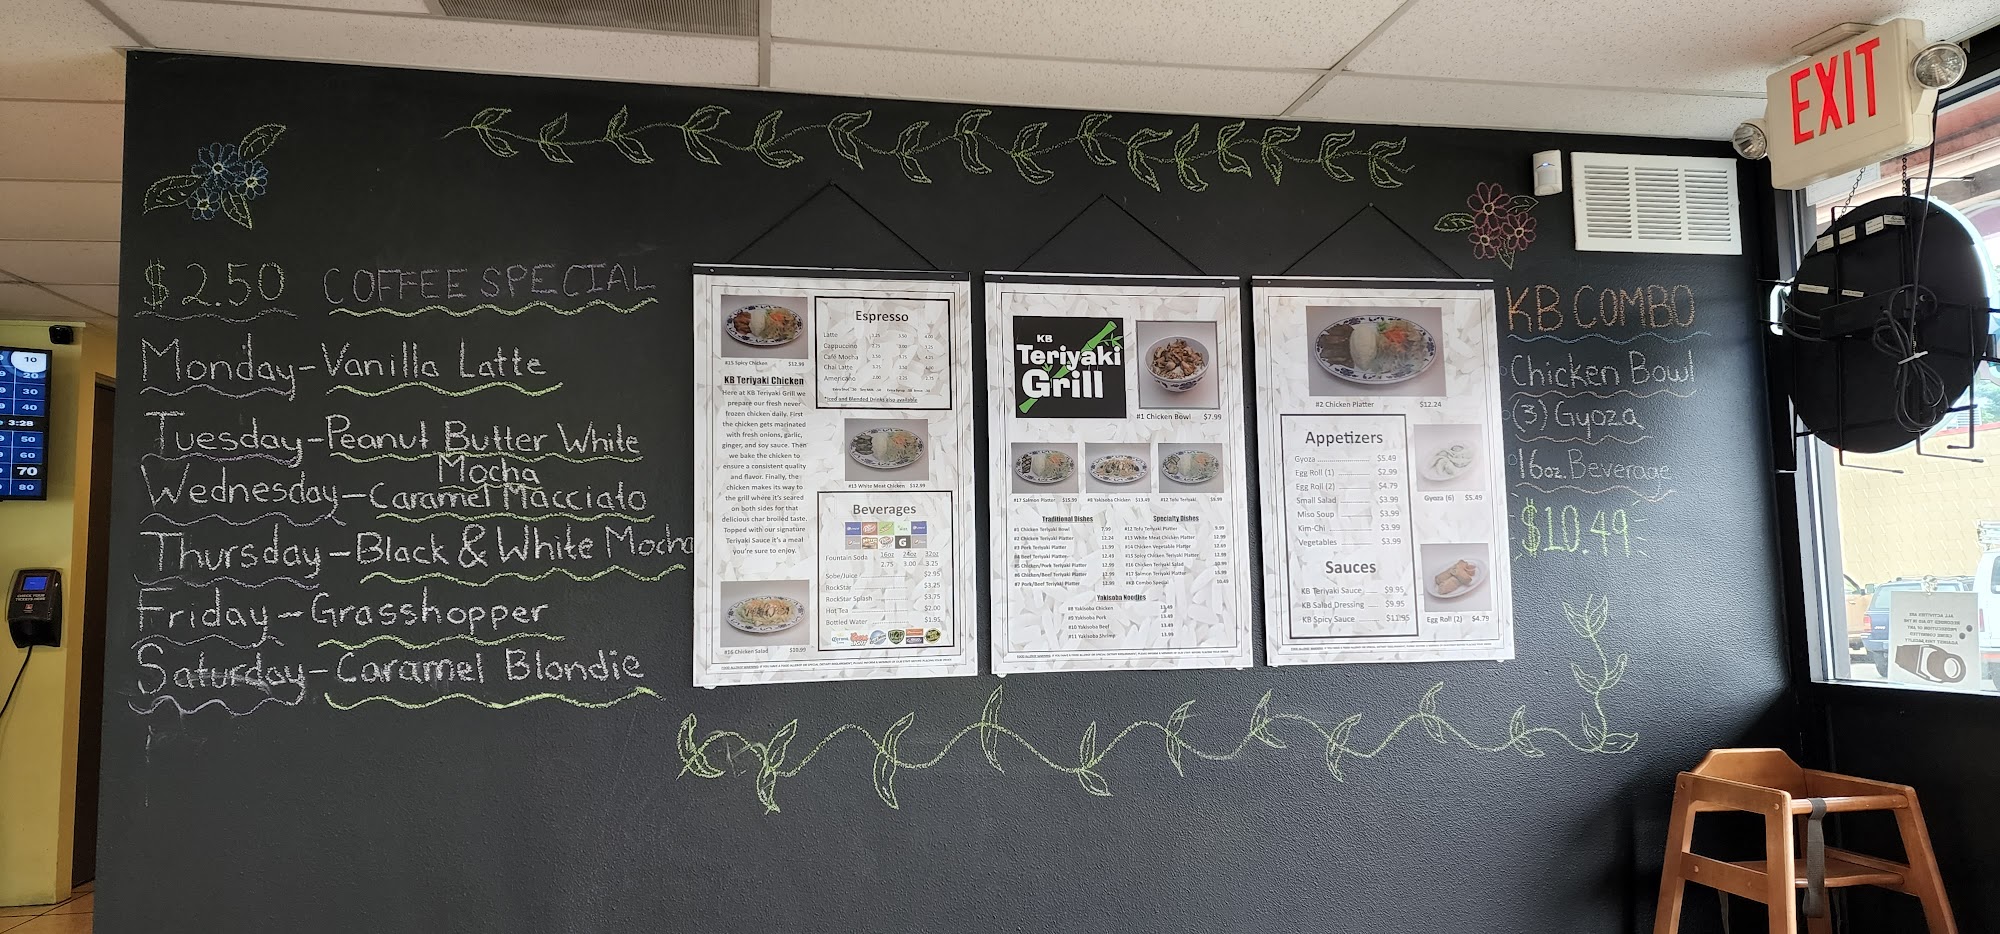 $2.50 COFFEE SPECIAL
Monday-Vanilla Latte
Tuesday-Peanut Butter White
Mocha
Wednesday-Caramel Macciato
Thursday-Black & White Mocha
Friday-Grasshopper
Saturday-Caramel Blondie
#15 Spicy Chicken $12.99
KB Teriyaki Chicken
Here at KB Teriyaki Grill we
prepare our fresh never
frozen chicken daily. First
the chicken gets marinated
with fresh onions, garlic,
ginger, and soy sauce. Then
we bake the chicken to
ensure a consistent quality
and flavor. Finally, the
chicken makes its way to
the grill where it's seared
on both sides for that
delicious char broiled taste.
Topped with our signature
Teriyaki Sauce it's a meal
you're sure to enjoy.
#16 Chicken Salad $10.99
Espresso
Latte
Cappuccino
Café Mocha
Chai Latte
Americano
*Iced and Blended Drinks also available
#13 White Meat Chicken $12.99
Beverages
16oz 24oz 32oz
Fountain Soda 2.75 3.00 3.25
Sobe/Juice $2.95
RockStar $3.25
RockStar Splash $3.75
Hot Tea $2.00
Bottled Water $1.95
KB
Teriyaki
Grill
#1 Chicken Bowl $7.99
#17 Salmon Platter $15.99 #8 Yakisoba Chicken $13.49 #12 Tofu Teriyaki
Traditional Dishes
#1 Chicken Teriyaki Bowl 7.99
#2 Chicken Teriyaki Platter 12.24
#3 Pork Teriyaki Platter 11.99
#4 Beef Teriyaki Platter 12.49
#5 Chicken/Pork Teriyaki Platter 12.99
#6 Chicken/Beef Teriyaki Platter 12.99
#7 Pork/Beef Teriyaki Platter 12.99
Specialty Dishes
#12 Tofu Teriyaki Platter 9.99
#13 White Meat Chicken Platter 12.99
#14 Chicken Vegetable Platter
#15 Spicy Chicken Teriyaki Platter 12.99
#16 Chicken Teriyaki Salad 10.99
#17 Salmon Teriyaki Platter 15.99
#KB Combo Special 10.49
Yakisoba Noodles
#8 Yakisoba Chicken 13.49
#9 Yakisoba Pork 13.49
#10 Yakisoba Beef 13.49
#11 Yakisoba Shrimp 13.99
#2 Chicken Platter $12.24
Appetizers
Gyoza $5.49
Egg Roll (1) $2.99
Egg Roll (2) $4.79
Small Salad $3.99
Miso Soup $3.99
Kim-Chi $3.99
Vegetables $3.99
Sauces
KB Teriyaki Sauce $9.95
KB Salad Dressing $9.95
KB Spicy Sauce $11.95
Gyoza (6) $5.49
Egg Roll (2) $4.79
KB COMBO
Chicken Bowl
(3) Gyoza
16oz. Beverage
$10.49
EXIT
10
20
30
40
3:28
50
60
70
80